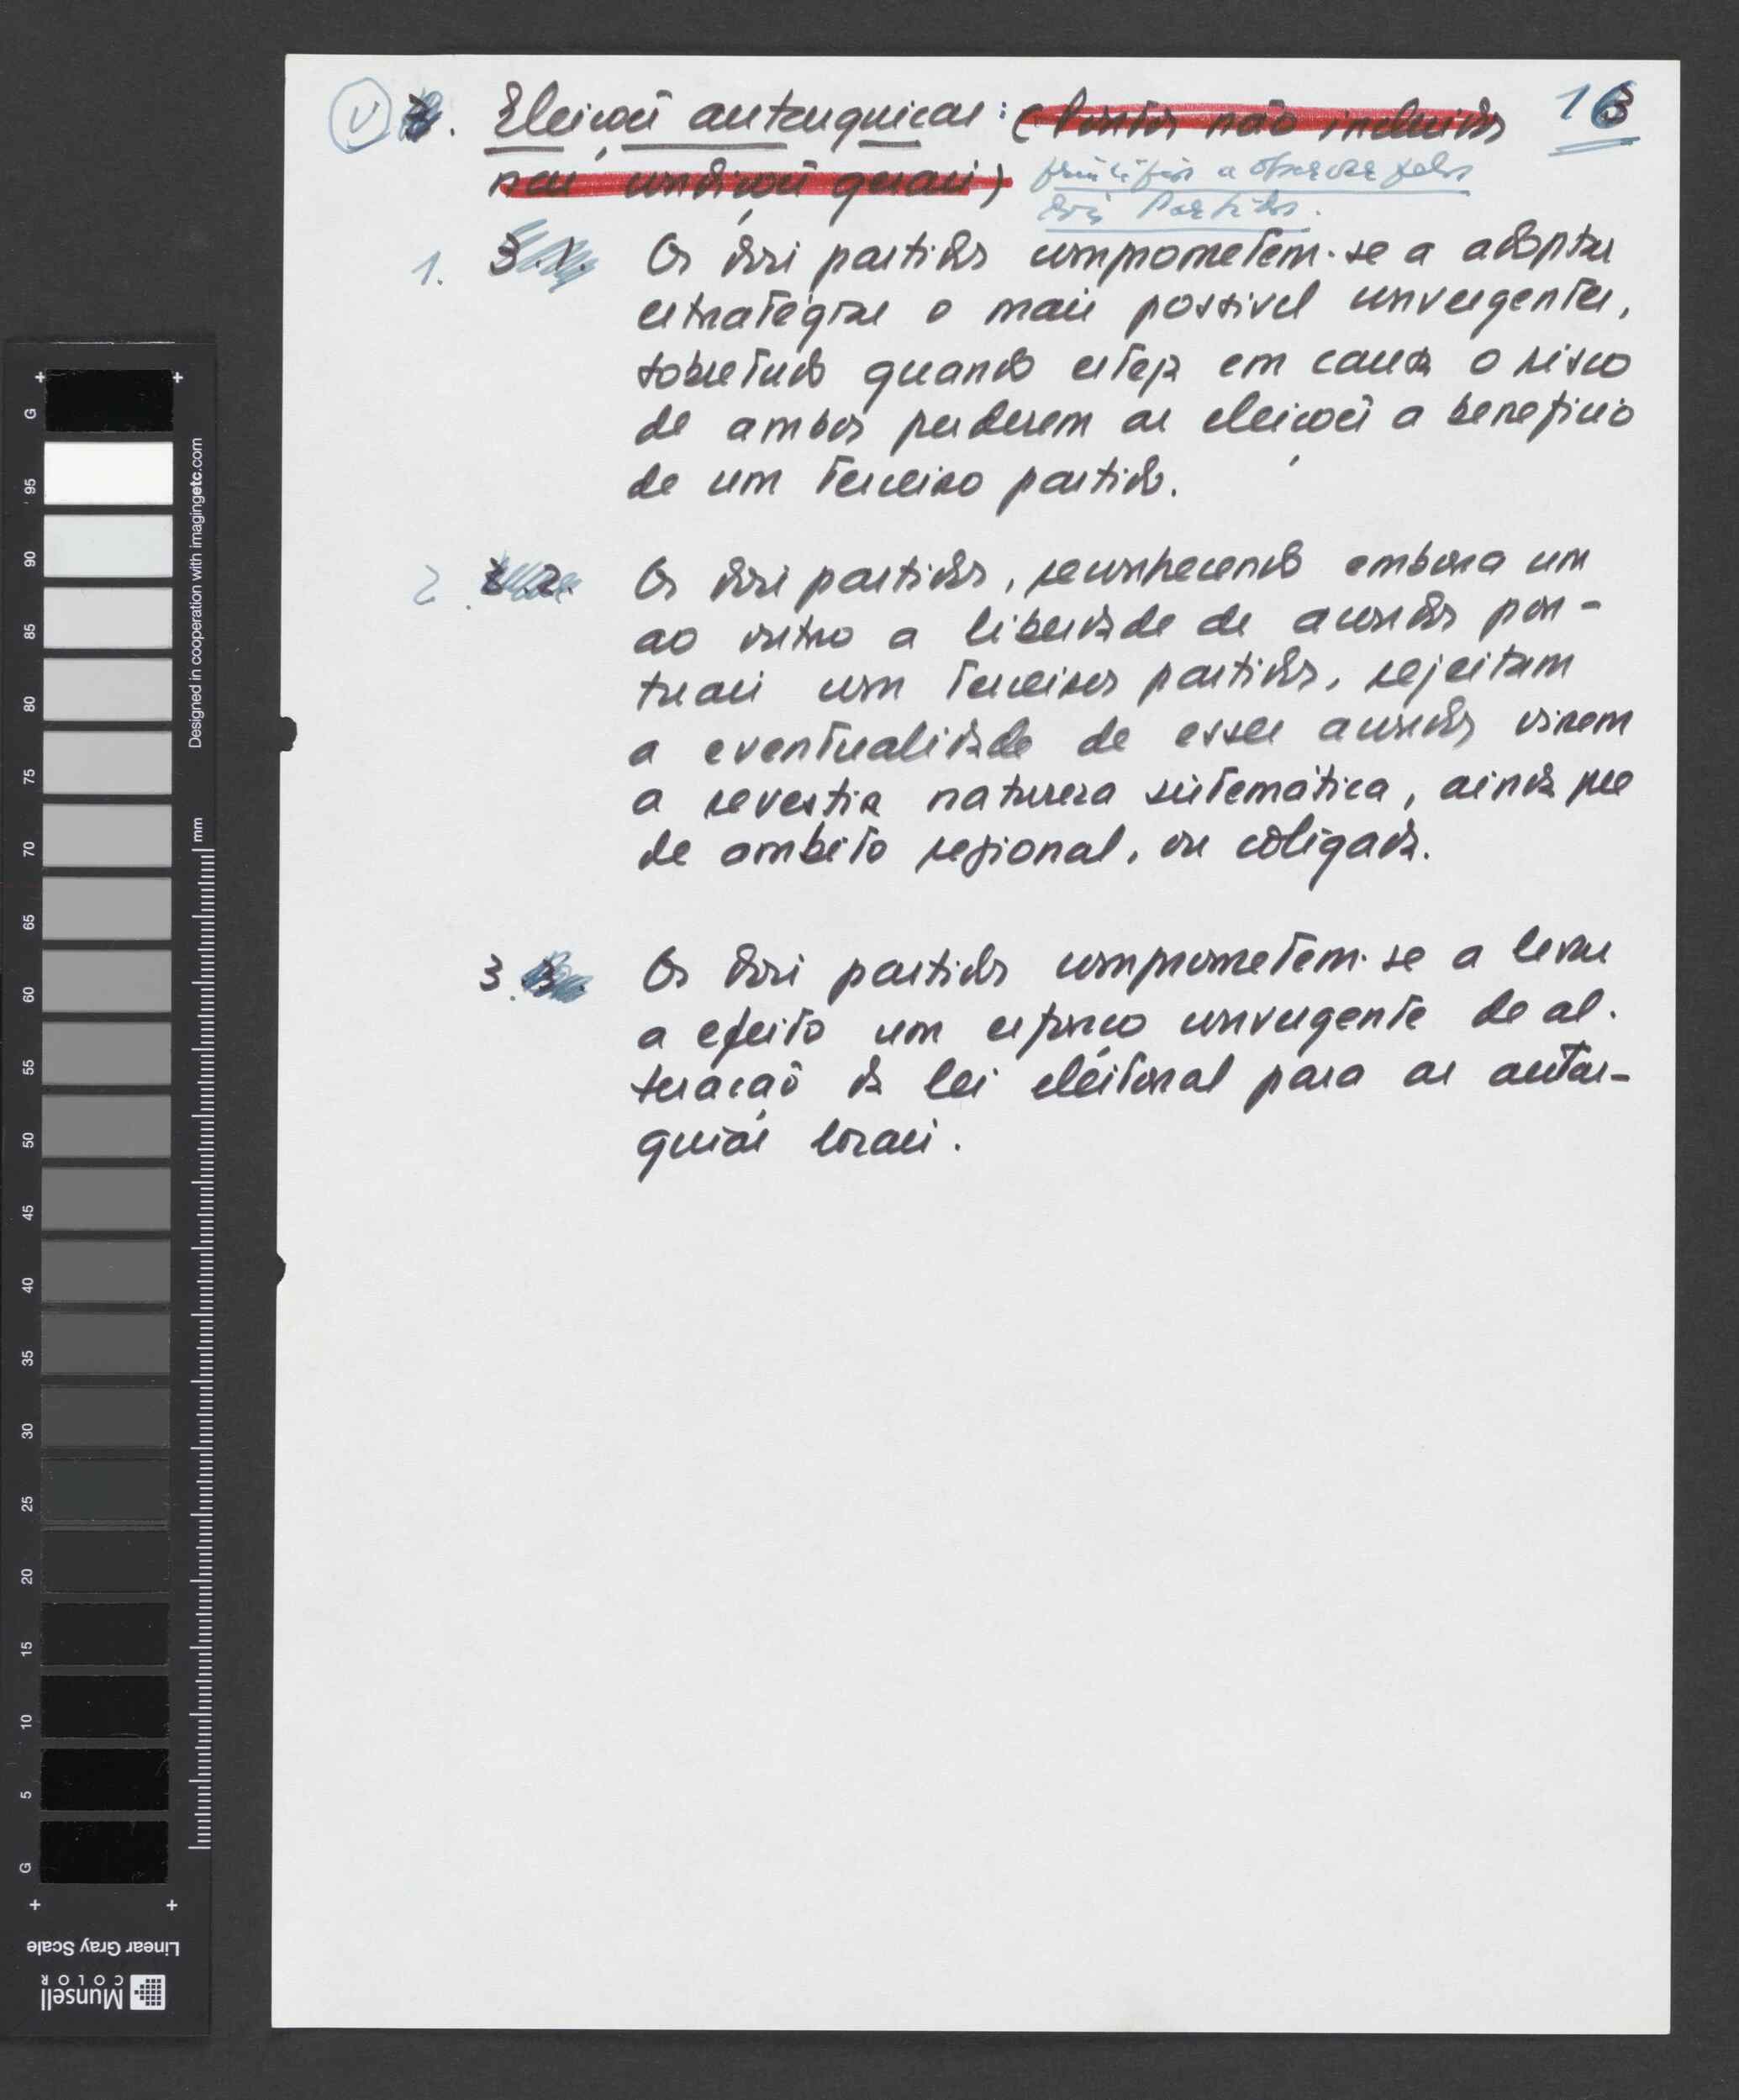 V 3. Eleições autárquicas: (Pontos não incluídos 16
nas condições gerais) princípios a observar pelos
dois Partidos.
1. 3.1. Os dois partidos comprometem-se a adoptar
estratégias o mais possivel convergentes,
sobretudo quando esteja em causa o risco
de ambos perderem as eleições a beneficio
de um terceiro partido.
2. 3.2. Os dois partidos, reconhecendo embora um
ao outro a liberdade de acordos pon-
tuais com terceiros partidos, rejeitam
a eventualidade de esses acordos virem
a revestir natureza sistemática, ainda que
de ambito regional, ou coligada.
3. 3. Os dois partidos comprometem-se a levar
a efeito um esforço convergente de al-
teração da lei eleitoral para as autar-
quias locais.
G 95 90 85 80 75 70 65 60 55 50 45 40 35 30 25 20 15 10 5 G
Designed in cooperation with imagingetc.com
mm
Linear Gray Scale
Munsell
COLOR